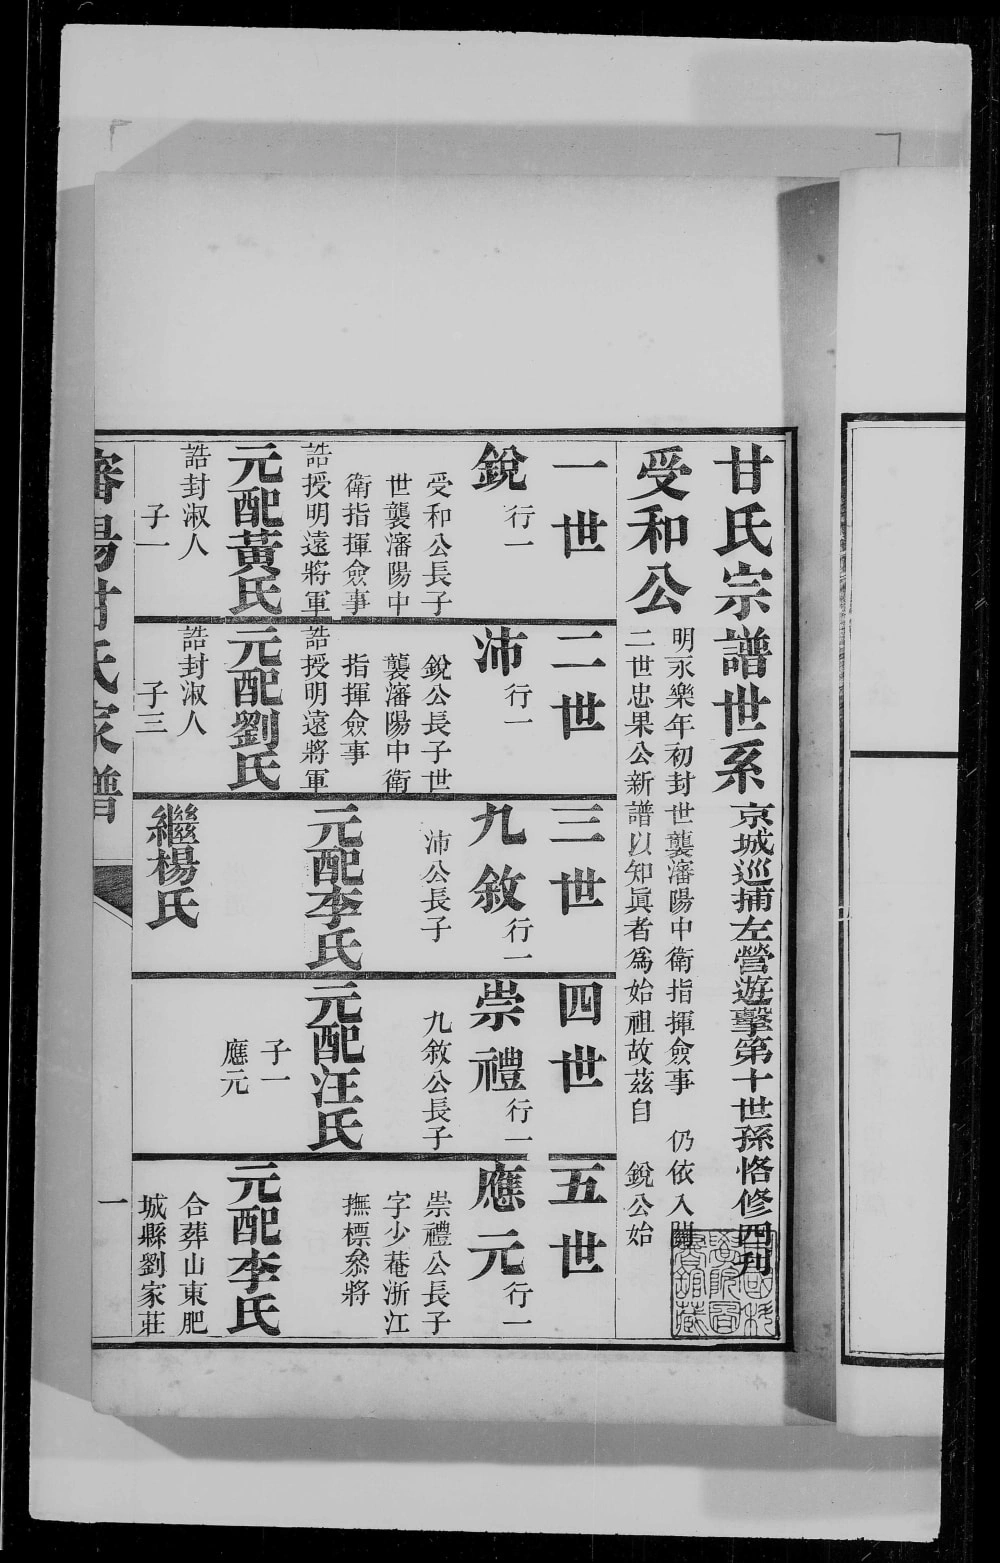 甘氏宗譜世系 京城巡捕左營遊擊第十世孫恪修四刊
受和公
明永樂年初封世襲瀋陽中衛指揮僉事 仍依入關
二世忠果公新譜以知眞者爲始祖故茲自 銳公始
一世
銳 行一
受和公長子
世襲瀋陽中
衛指揮僉事
誥授明遠將軍
元配黃氏
誥封淑人
子一
二世
沛 行一
銳公長子世
襲瀋陽中衛
指揮僉事
誥授明遠將軍
元配劉氏
誥封淑人
子三
三世
九敘 行一
沛公長子
元配李氏
繼楊氏
四世
崇禮 行一
九敘公長子
元配汪氏
子一
應元
五世
應元 行一
崇禮公長子
字少菴浙江
撫標叅將
元配李氏
合葬山東肥
城縣劉家莊
瀋陽甘氏家譜
一